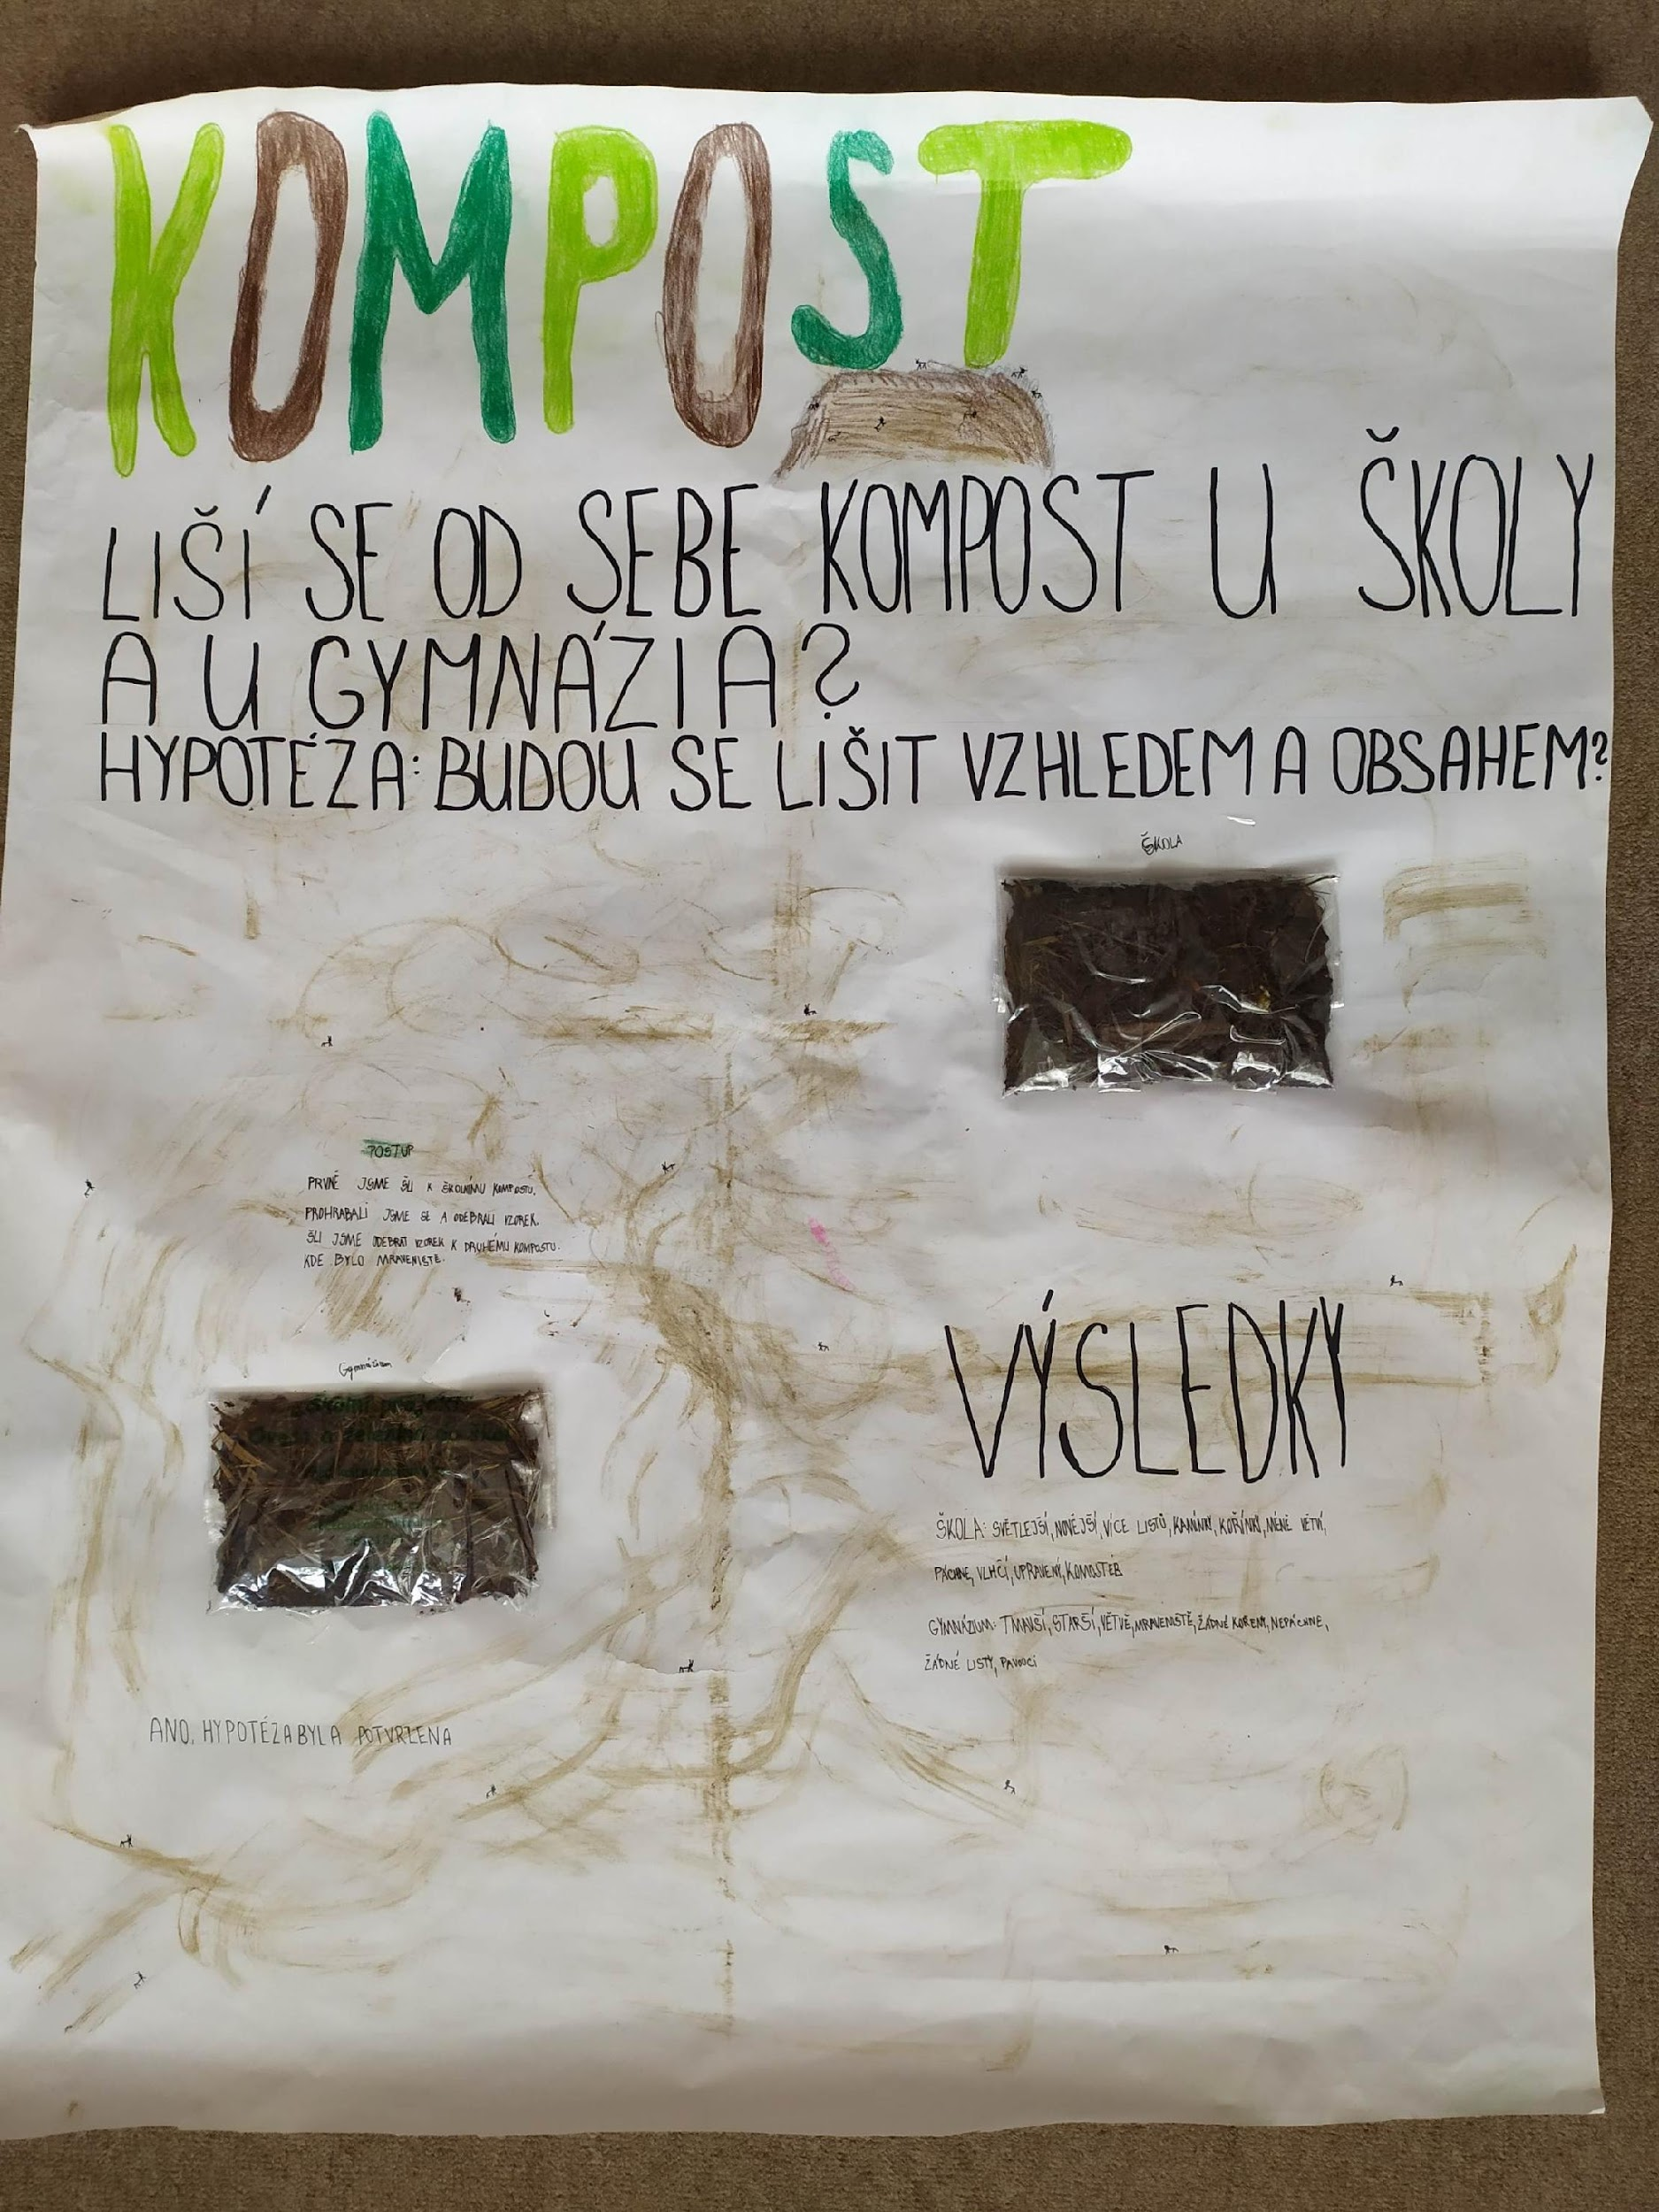 KOMPOST
LIŠÍ SE OD SEBE KOMPOST U ŠKOLY
A U GYMNÁZIA?
HYPOTÉZA: BUDOU SE LIŠIT VZHLEDEM A OBSAHEM?
ŠKOLA
POSTUP
PRVNĚ JSME ŠLI K ŠKOLNÍMU KOMPOSTU.
PROHRABALI JSME SE A ODEBRALI VZOREK.
ŠLI JSME ODEBRAT VZOREK K DRUHÉMU KOMPOSTU.
KDE BYLO MRAVENIŠTĚ.
Gymnázium
Školní projekt
Ovoce a zelenina do škol
VÝSLEDKY
ŠKOLA: SVĚTLEJŠÍ, NOVĚJŠÍ, VÍCE LISTŮ, KAMÍNKY, KOŘÍNKY, MÉNĚ VĚTVÍ,
PÁCHNE, VLHČÍ, UPRAVENÝ, KOMOSTÉR
GYMNÁZIUM: TMAVŠÍ, STARŠÍ, VĚTVE, MRAVENIŠTĚ, ŽÁDNÉ KOŘENY, NEPÁCHNE,
ŽÁDNÉ LISTY, PAVOUCI
ANO, HYPOTÉZA BYLA POTVRZENA